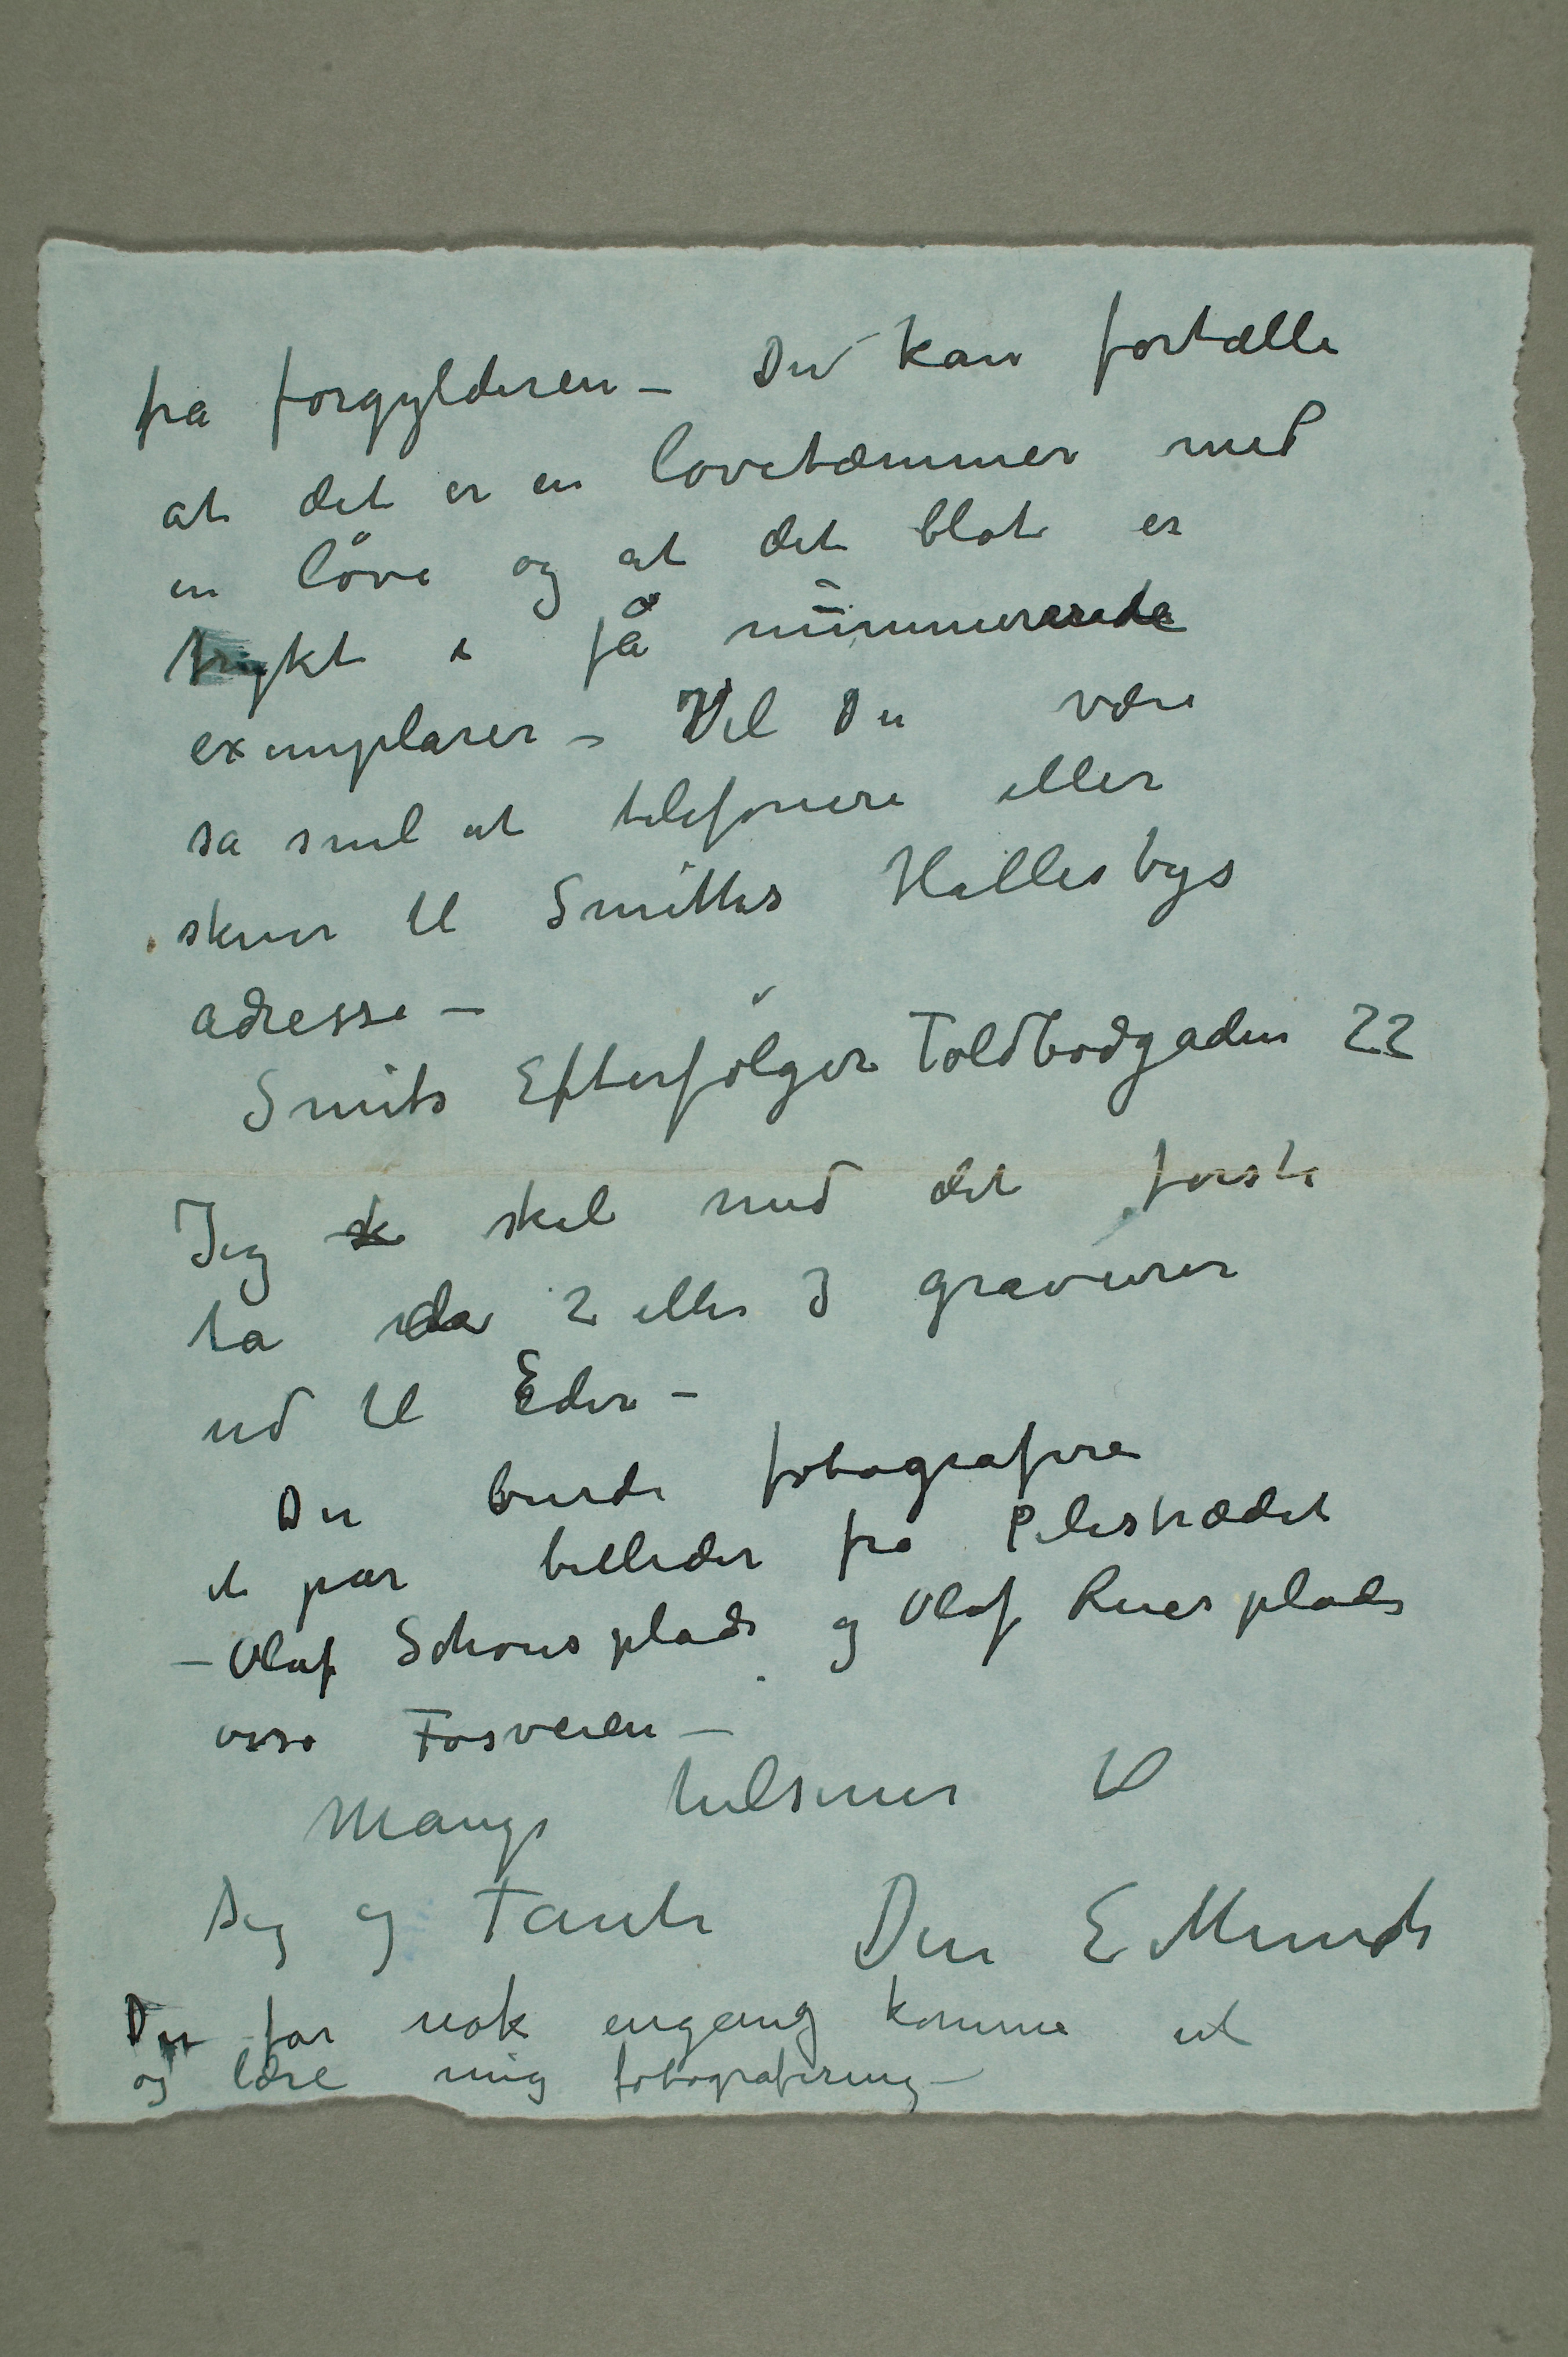 fra forgylderen – Du kan fortælle
at det er en løvetæmmer med
en løve og at det blot er
trykt i få nummererede
exemplarer – Vil Du være
så snil at telefonere eller
skrive til Smiths Hallesbys
adresse –
Smits Efterfølger Toldbodgaden 22
Jeg sk skal med det første
ta da 2 eller 3 gravurer
ud til Eder –
Du burde fotografere
et par billeder fra Pilestrædet
– Olaf Schous plads og Olaf Rues plads
osso Fosveien –
Mange hilsener til
Dig og Tante Din E Munch
Du får nok engang komme ut
og lære mig fotografering –